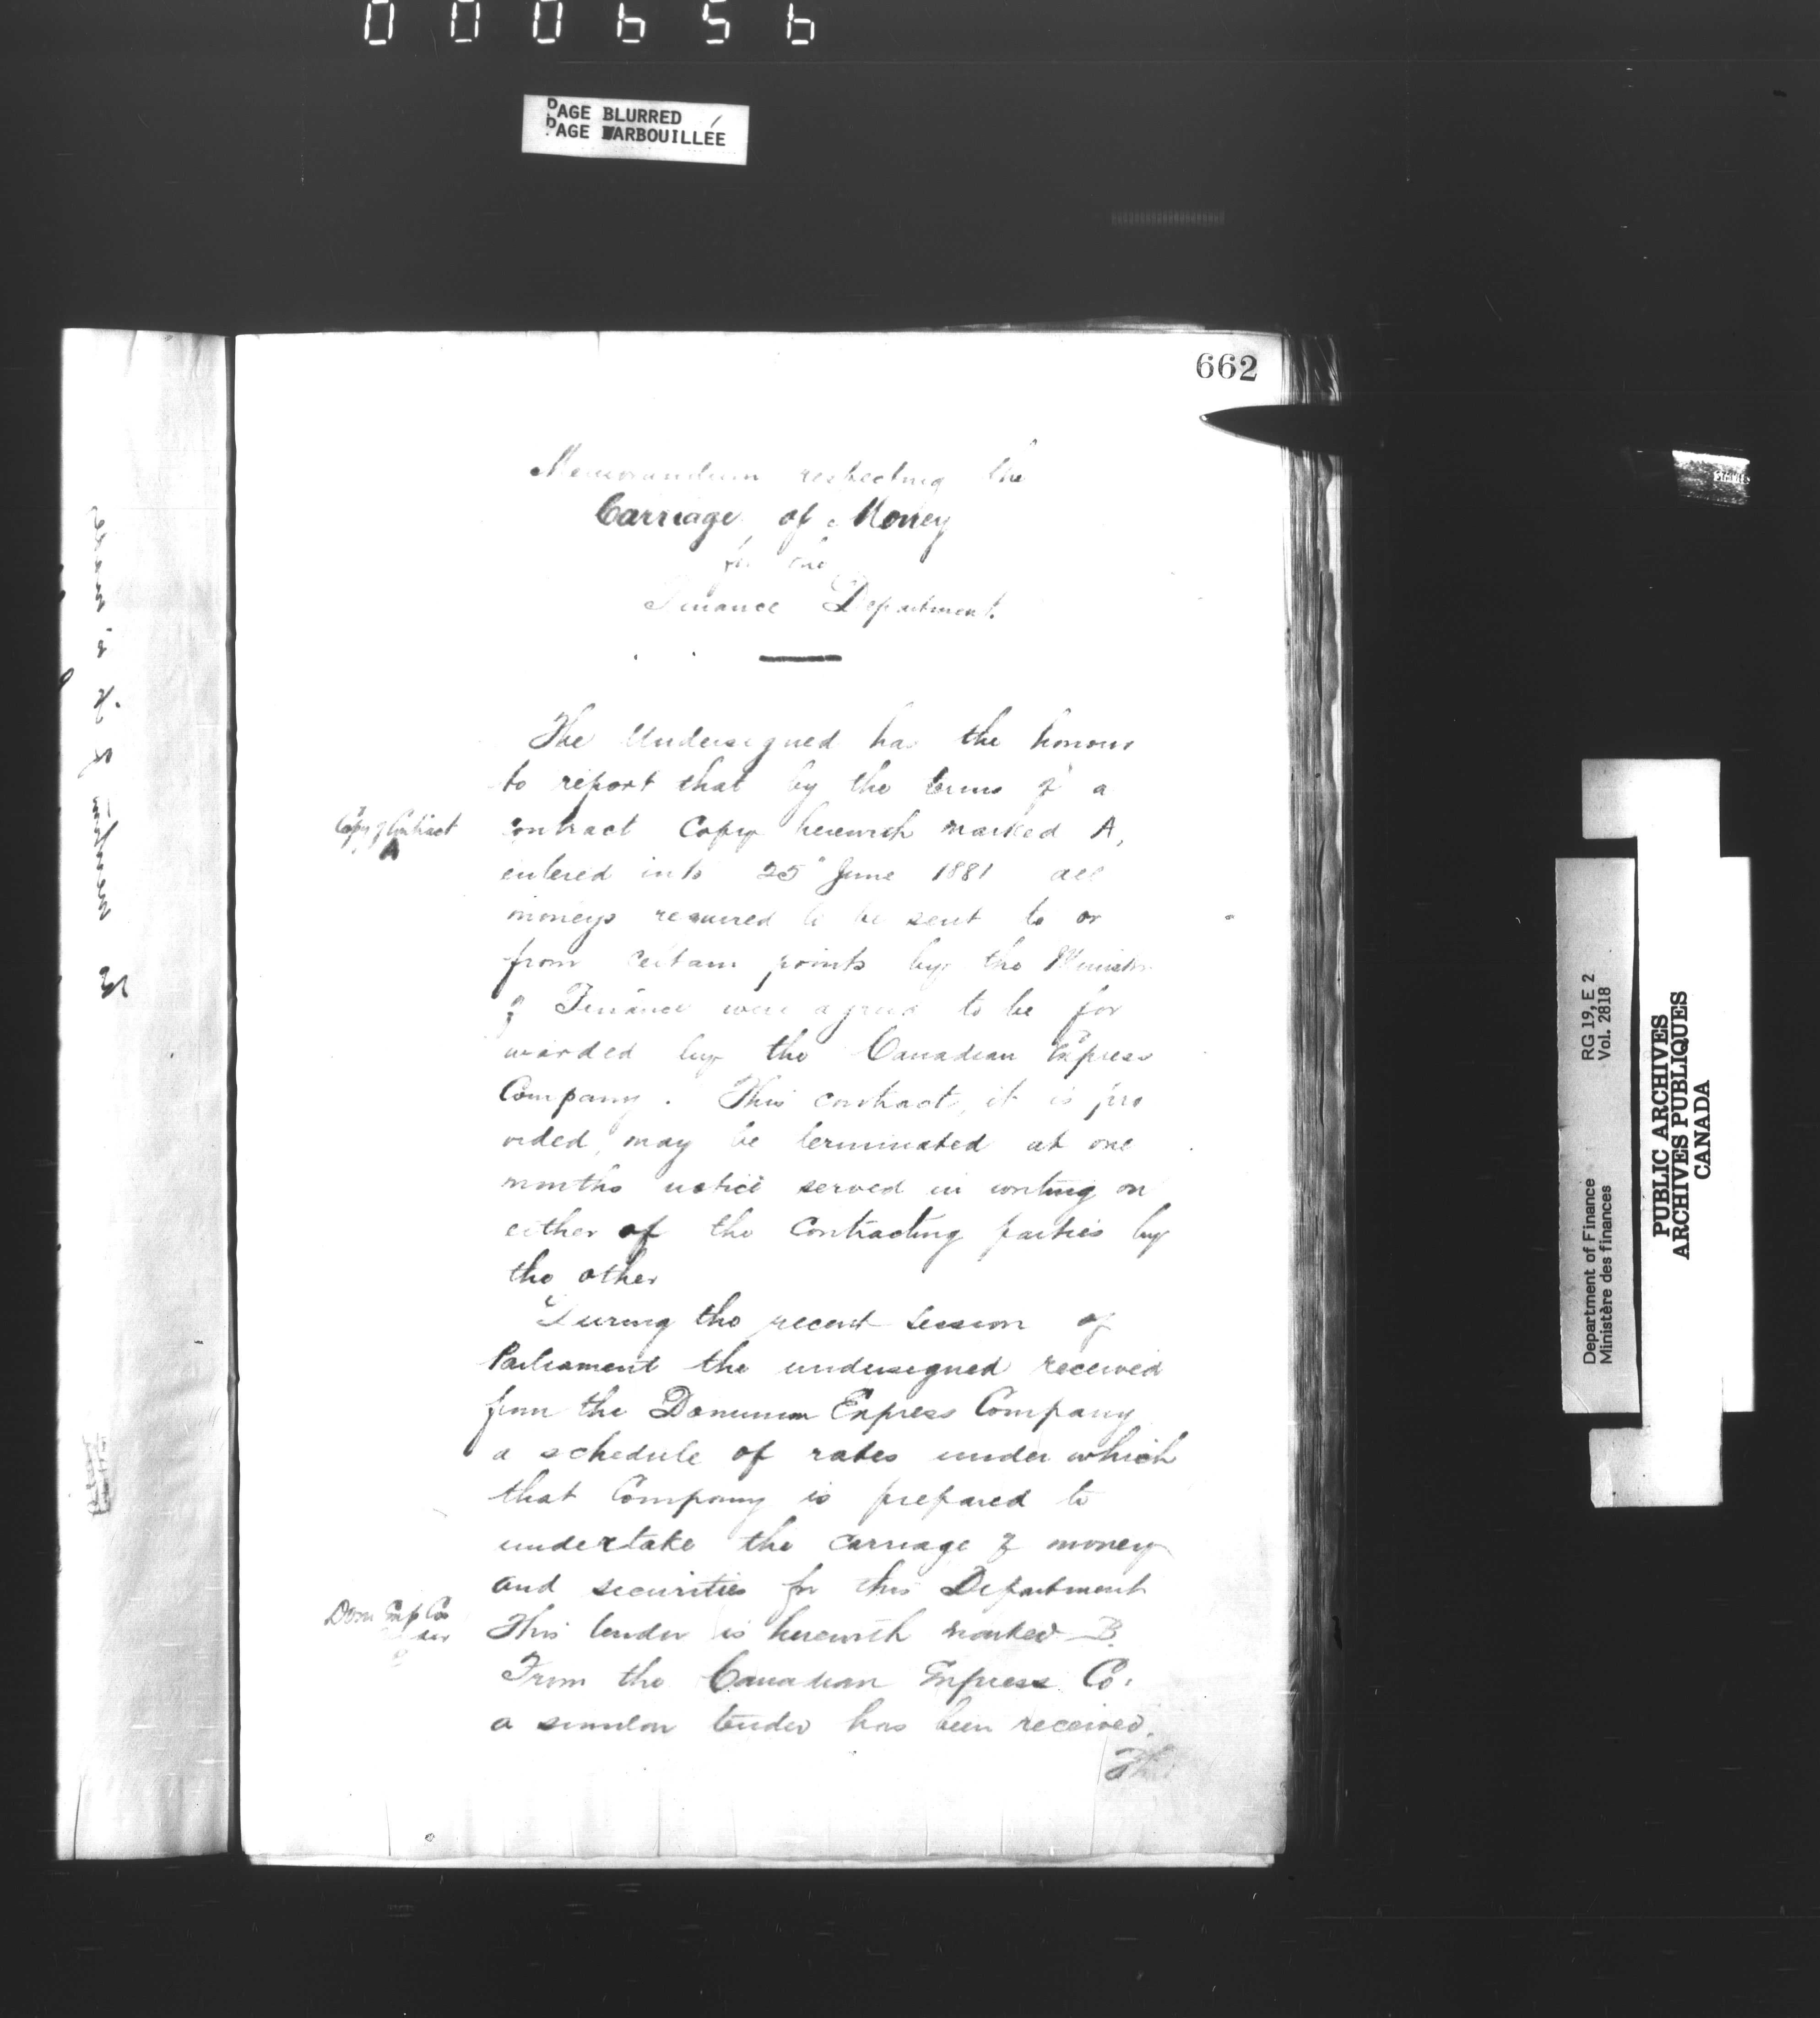 000656
PAGE BLURRED
PAGE BARBOUILLÉE
662
Memorandum respecting the
Carriage of Money
for the
Finance Department.
The Undersigned has the honour
to report that by the terms of a
Copy of Contract
A
contract Copy herewith marked A,
entered into 25" June 1881 all
moneys required to be sent to or
from certain points by the Minister
of Finance were agreed to be for
warded by the Canadian Express
Company. This contract, it is pro
vided, may be terminated at one
months notice served in writing on
either of the Contracting parties by
the other
During the recent Session of
Parliament the undersigned received
from the Dominion Express Company
a schedule of rates under which
that Company is prepared to
undertake the carriage of money
and securities for this Department
Dom Exp Cos
This tender is herewith marked B.
From the Canadian Express Co.
a similar tender has been received.
The
Department of Finance RG 19, E 2
Ministère des finances Vol. 2818
PUBLIC ARCHIVES
ARCHIVES PUBLIQUES
CANADA